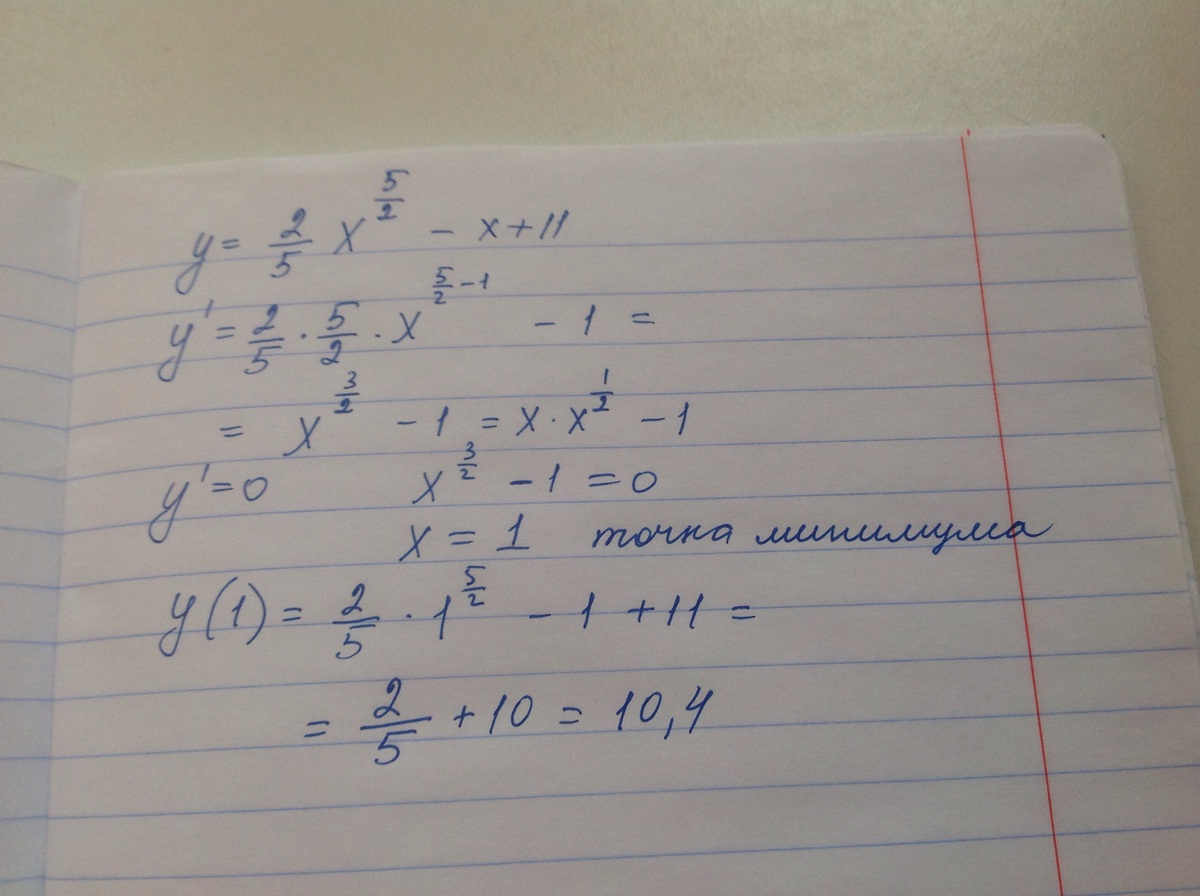 y = 2/5 x^(5/2) - x + 11
y' = 2/5 · 5/2 · x^(5/2 - 1) - 1 =
= x^(3/2) - 1 = x · x^(1/2) - 1
y' = 0 x^(3/2) - 1 = 0
x = 1 точка минимума
y(1) = 2/5 · 1^(5/2) - 1 + 11 =
= 2/5 + 10 = 10,4